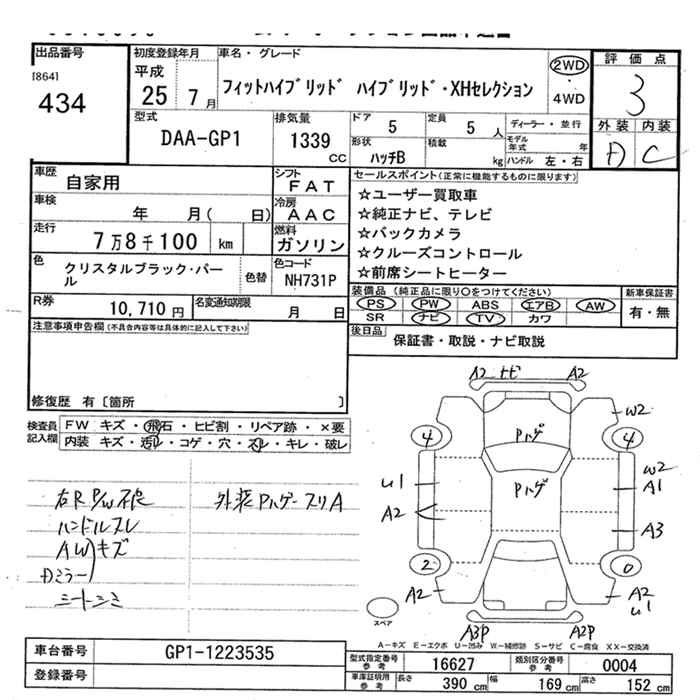 出品番号
[864]
434
初度登録年月
平成
25 7月
車名・グレード
フィットハイブリッド ハイブリッド・XHセレクション
2WD
・
4WD
評価点
3
外装 内装
D C
型式
DAA-GP1
排気量
1339
CC
ドア
5
定員
5 人
ディーラー・並行
形状
ハッチB
積載
kg
モデル年式 年
ハンドル 左・右
車歴
自家用
シフト
FAT
車検
年 月( 日)
冷房
AAC
走行
7万8千100 km
燃料
ガソリン
色
クリスタルブラック・パール
色替
色コード
NH731P
R券
10,710 円
名変通知期限
月 日
セールスポイント(正常に機能するものに限ります)
☆ユーザー買取車
☆純正ナビ、テレビ
☆バックカメラ
☆クルーズコントロール
☆前席シートヒーター
装備品 (純正品に限り○をつけてください)
PS PW ABS エアB AW
SR ナビ TV カワ
新車保証書
有・無
後日品
保証書・取説・ナビ取説
注意事項申告欄(不具合内容等は具体的に記入して下さい)
修復歴 有[箇所 ]
検査員記入欄
FW キズ・飛石・ヒビ割・リペア跡・×要
内装 キズ・汚れ・コゲ・穴・スレ・キレ・破レ
右R P/W不良
ハンドルスレ
AWキズ
Dミラー
シートシミ
外装Pハゲースリ A
A2 トビ A2
W2
4 Pハゲ 4
U1 Pハゲ W2
A1
A2 A3
2 0
A2 A2
U1
A3P A2P
スペア
A-キズ E-エクボ U-凹み W-補修跡 S-サビ C-腐食 XX-交換済
車台番号
GP1-1223535
登録番号
型式指定番号
参考
16627
類別区分番号
参考
0004
車庫証明用
参考
長さ
390 cm
幅
169 cm
高さ
152 cm